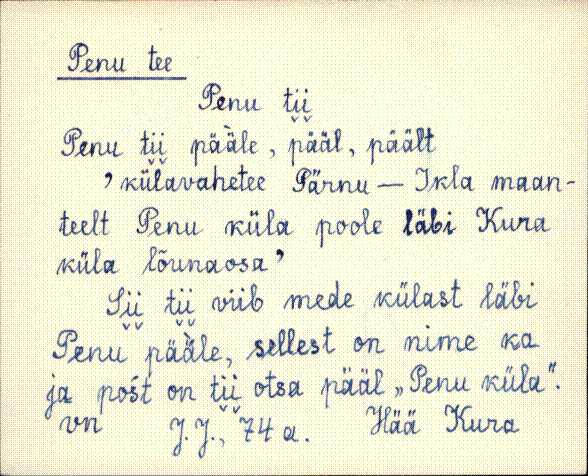 Penu tee
Penu ti̬i̬
Penu ti̬i̬ pä̀äle, pääl, päält
’külavahetee Pärnu — Ikla maan-
teelt Penu küla poole läbi Kura
küla lõunaosa’
Si̬i̬ ti̬i̬ viib mede külast läbi
Penu pä̀äle, sellest on nime ka
ja pośt on ti̬i̬ otsa pääl „Penu küla“.
vn J. J., 74 a. Hää Kura